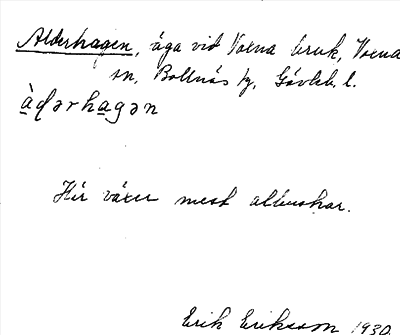 Alderhagen, äga vid Voxna bruk, Voxna
sn, Bollnäs tg, Gävleb. l.
àḍərhagən
Här växer mest albuskar.
Erik Eriksson 1930.